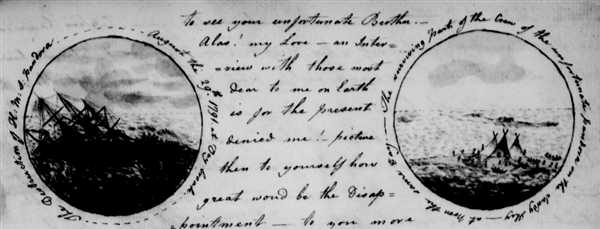 The Destruction of H.M.S. Pandora August the 29th 1791 at Day break
to see your unfortunate Brother.—
Alas! my Love — an Inter=
=view with those most
dear to me on Earth
is for the present
denied me! picture
then to yourself how
great woud be the Disap=
pointment — to you more
The surviving part of the Crew of the unfortunate Pandora on the Sandy Key — at Noon the same Day —